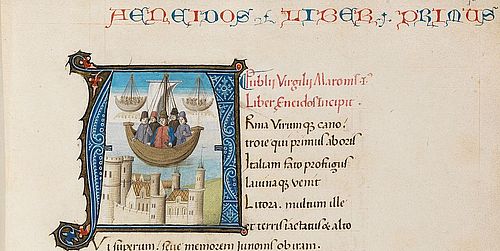 AENEIDOS LIBER PRIMUS
Publii Virgilii Maronis
Liber Eneidos Incipit
Rma Virumq; cano,
troie qui primus ab oris
Italiam fato profugus
lauinaq; uenit
Litora. multum ille
et terris iactatus & alto
Vi superum, seue memorem Iunonis ob iram.